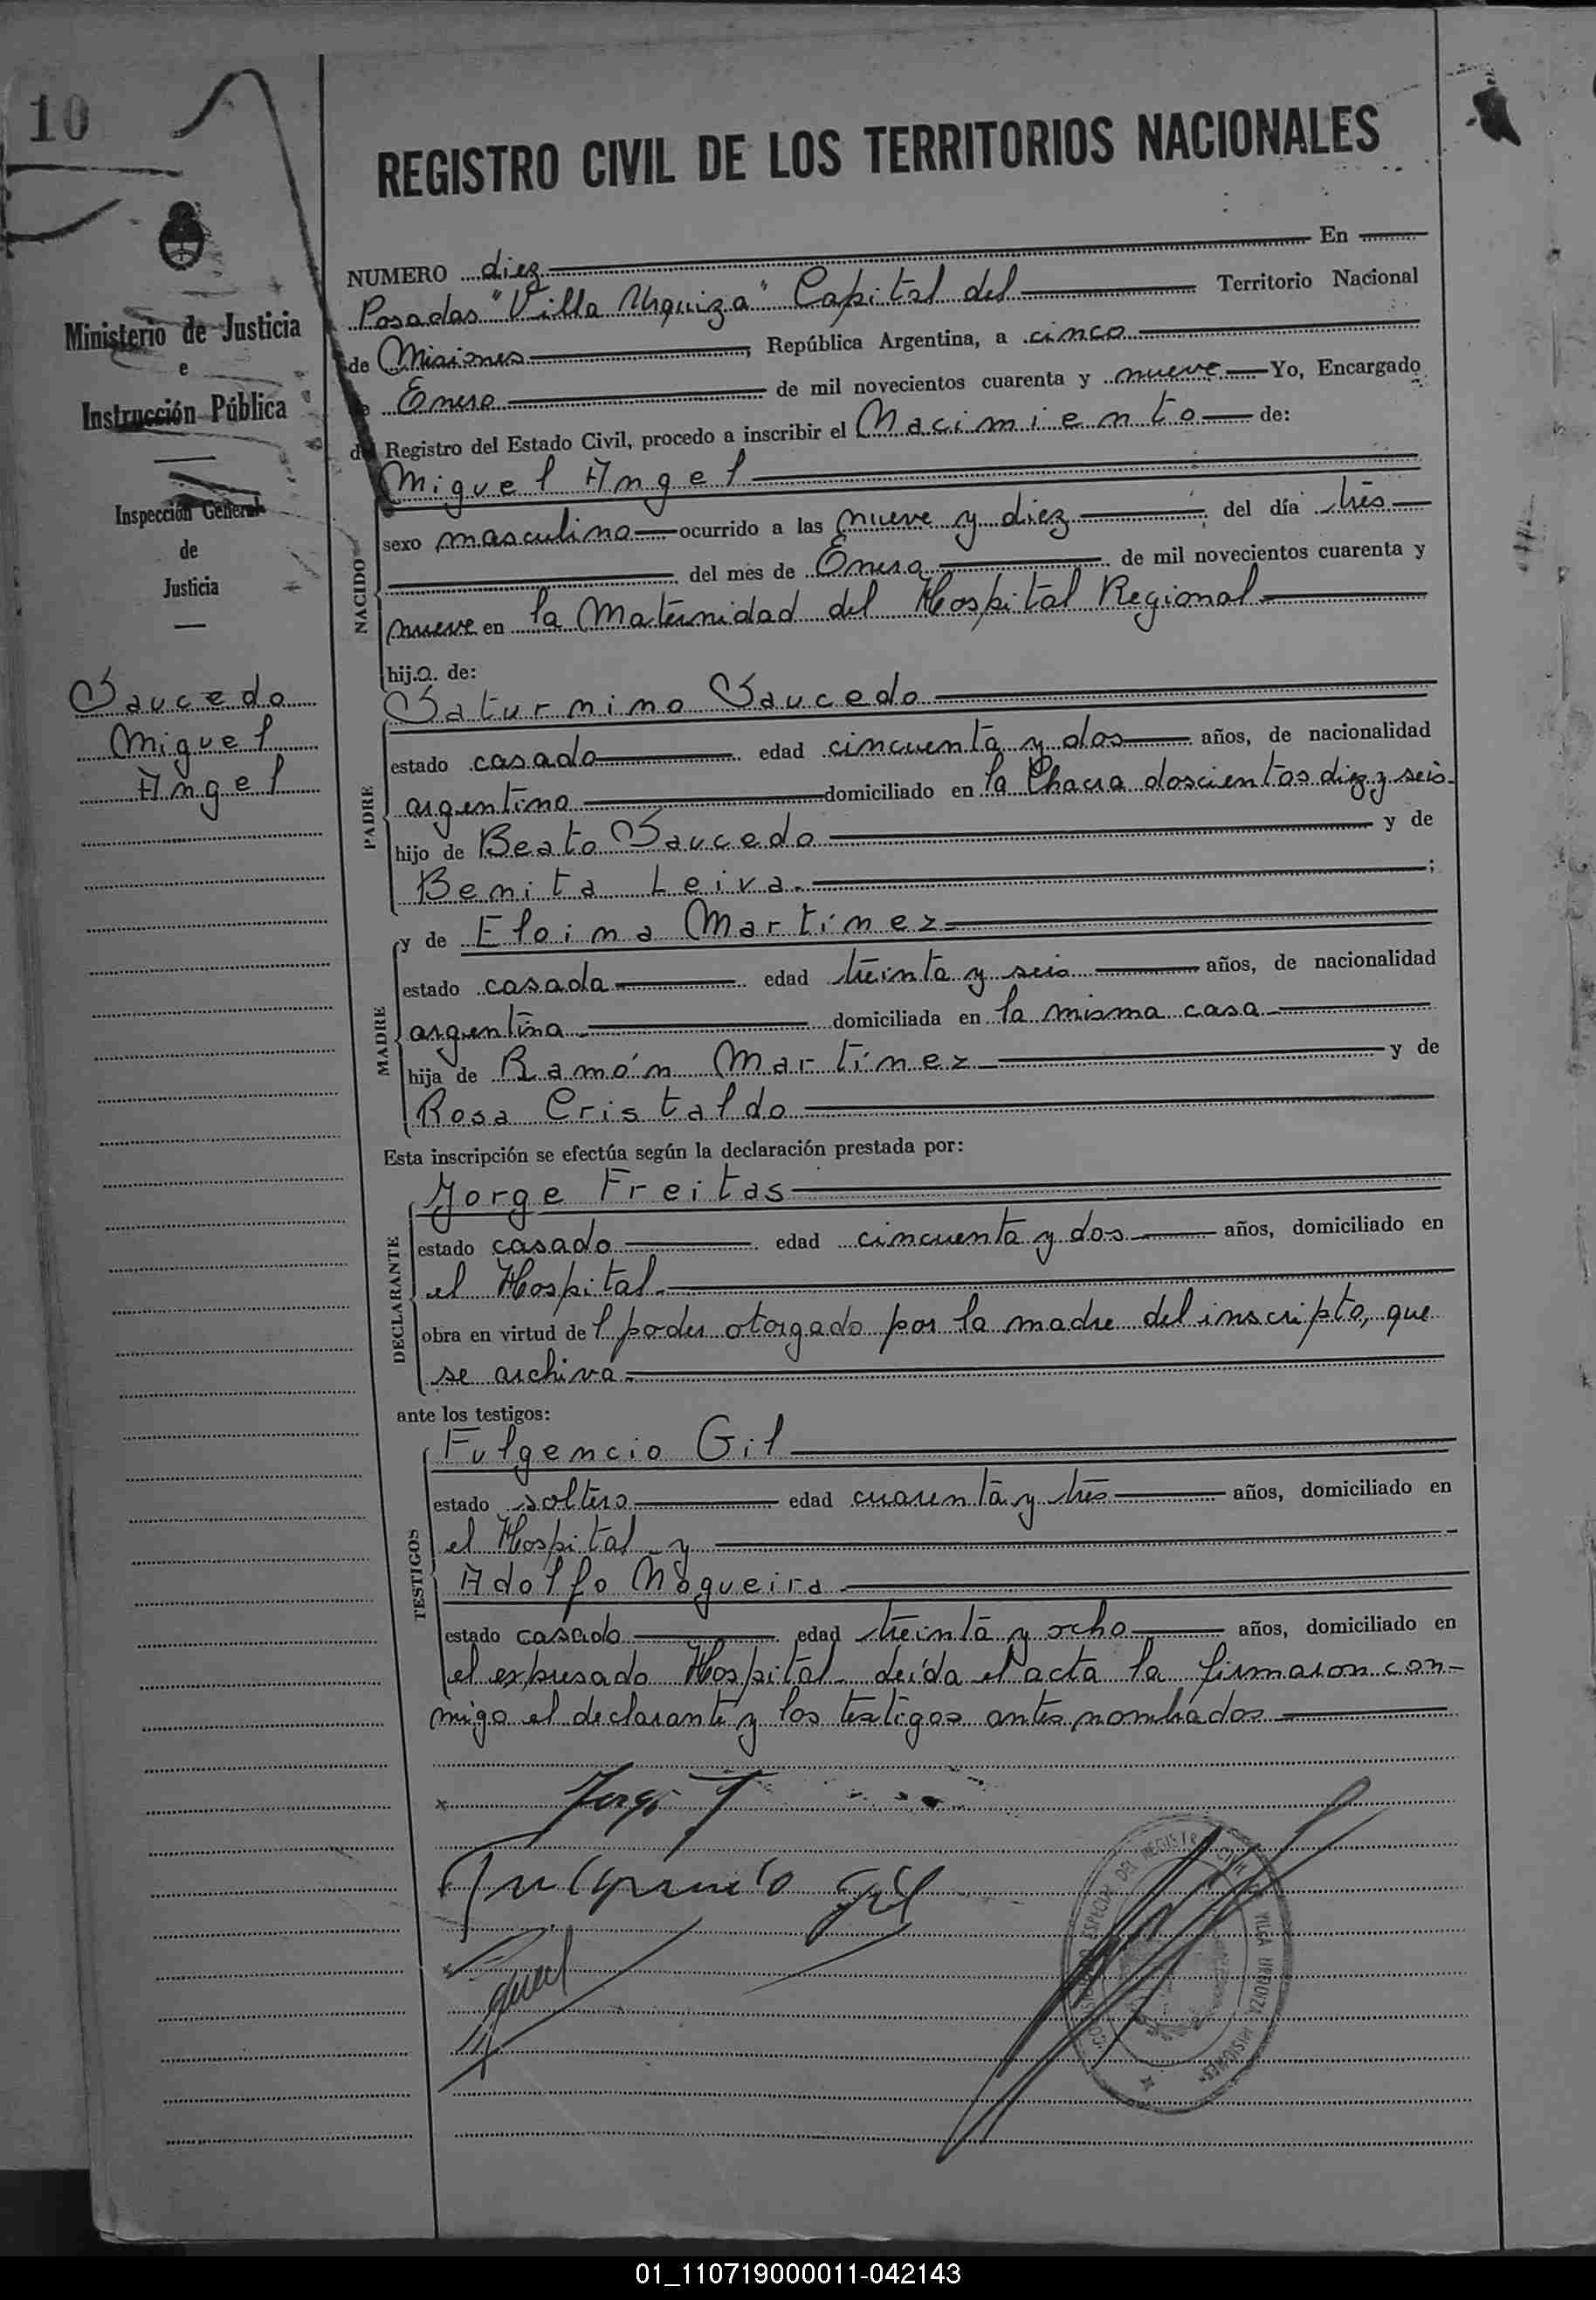 10
REGISTRO CIVIL DE LOS TERRITORIOS NACIONALES
Ministerio de Justicia
e
Instrucción Pública
Inspección General
de
Justicia
Saucedo
Miguel
Angel
NUMERO diez En
Posadas "Villa Urquiza" Capital del Territorio Nacional
de Misiones, República Argentina, a cinco
de Enero de mil novecientos cuarenta y nueve Yo, Encargado
del Registro del Estado Civil, procedo a inscribir el Nacimiento de:
NACIDO
Miguel Angel
sexo masculino ocurrido a las nueve y diez del día tres
del mes de Enero de mil novecientos cuarenta y
nueve en la Maternidad del Hospital Regional
hijo de:
PADRE
Saturnino Saucedo
estado casado edad cincuenta y dos años, de nacionalidad
argentino domiciliado en la Chacra doscientos diez y seis
hijo de Beato Saucedo y de
Benita Leiva. ;
MADRE
y de Eloina Martínez
estado casada edad treinta y seis años, de nacionalidad
argentina domiciliada en la misma casa
hija de Ramón Martínez y de
Rosa Cristaldo
Esta inscripción se efectúa según la declaración prestada por:
DECLARANTE
Jorge Freitas
estado casado edad cincuenta y dos años, domiciliado en
el Hospital.
obra en virtud del poder otorgado por la madre del inscripto, que
se archiva.
ante los testigos:
TESTIGOS
Fulgencio Gil
estado soltero edad cuarenta y tres años, domiciliado en
el Hospital y
Adolfo Nogueira
estado casado edad treinta y ocho años, domiciliado en
el expresado Hospital. Leída el acta la firmaron con-
migo el declarante y los testigos antes nombrados
x Jorge F
Fulgencio Gil
DEL REGISTRO CIVIL VILLA URQUIZA MISIONES
01_110719000011-042143